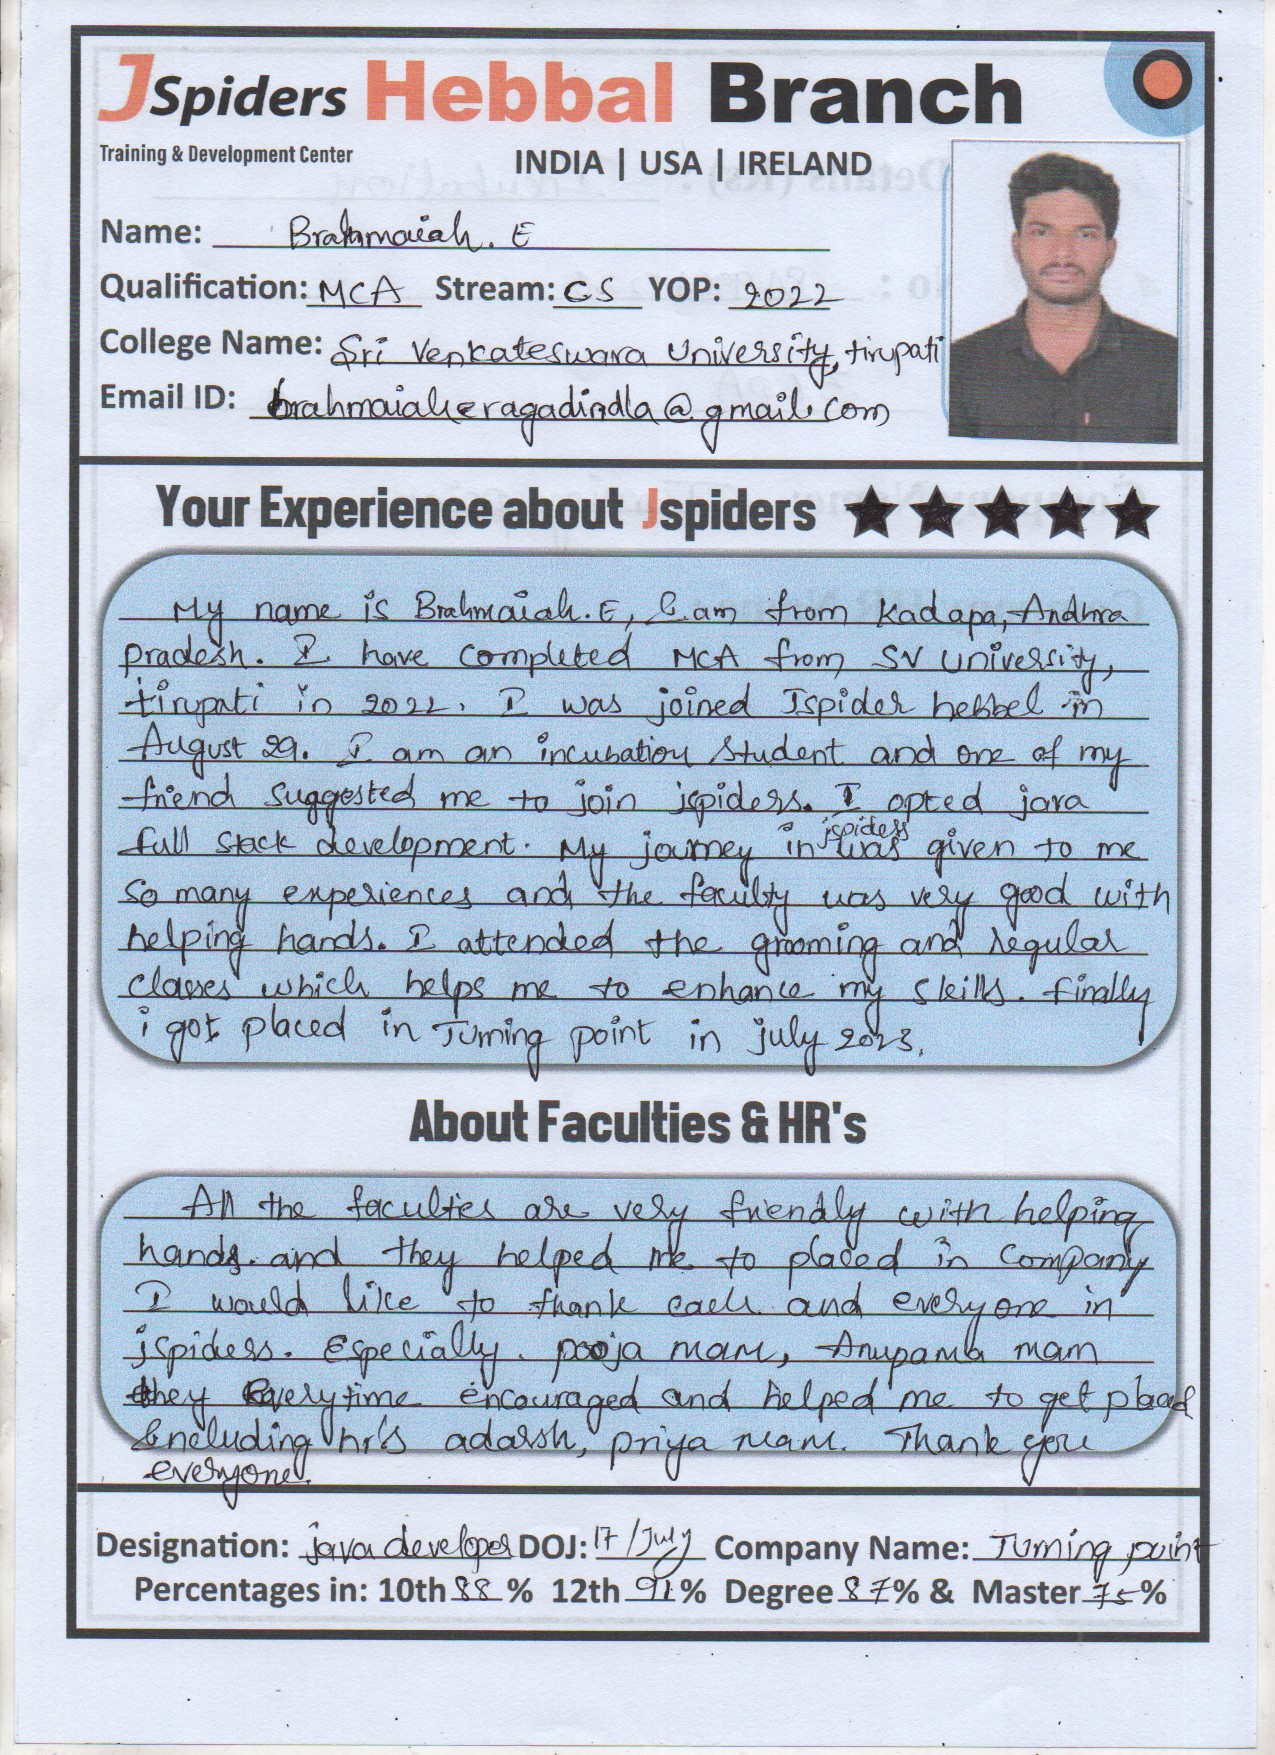 JSpiders Hebbal Branch
Training & Development Center
INDIA | USA | IRELAND
Name: Brahmaiah. E
Qualification: MCA Stream: CS YOP: 2022
College Name: Sri Venkateswara University, tirupati
Email ID: brahmaiaheragadindla@gmail.com
Your Experience about Jspiders ★★★★★
My name is Brahmaiah. E, I am from Kadapa, Andhra
pradesh. I have completed MCA from SV University,
tirupati in 2022. I was joined Jspider hebbel in
August 29. I am an incubation student and one of my
friend suggested me to join jspiders. I opted java
full stack development. My journey in jspiders was given to me
so many experiences and the faculty was very good with
helping hands. I attended the grooming and regular
classes which helps me to enhance my skills. finally
i got placed in Turning point in july 2023.
About Faculties & HR's
All the faculties are very friendly with helping
hands. and they helped me to placed in Company
I would like to thank each and everyone in
jspiders. Especially. pooja mam, Anupama mam
they Everytime encouraged and helped me to get placed
Including hr's adarsh, priya mam. Thank you
everyone.
Designation: java developer DOJ: 17/July Company Name: Turning point
Percentages in: 10th 88 % 12th 91 % Degree 87 % & Master 75 %